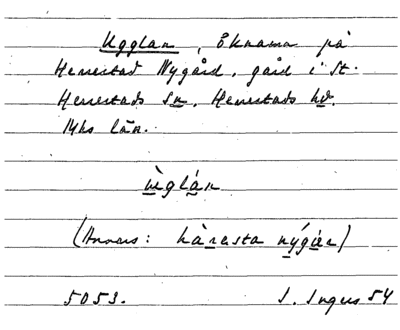 Ugglan, öknamn på
Herrestad Nygård, gård i St.
Herrestads sn, Herrestads hd.
Mhs län.
ùglán
(Annars: hàresta nýgår)
5053. I. Ingers 54